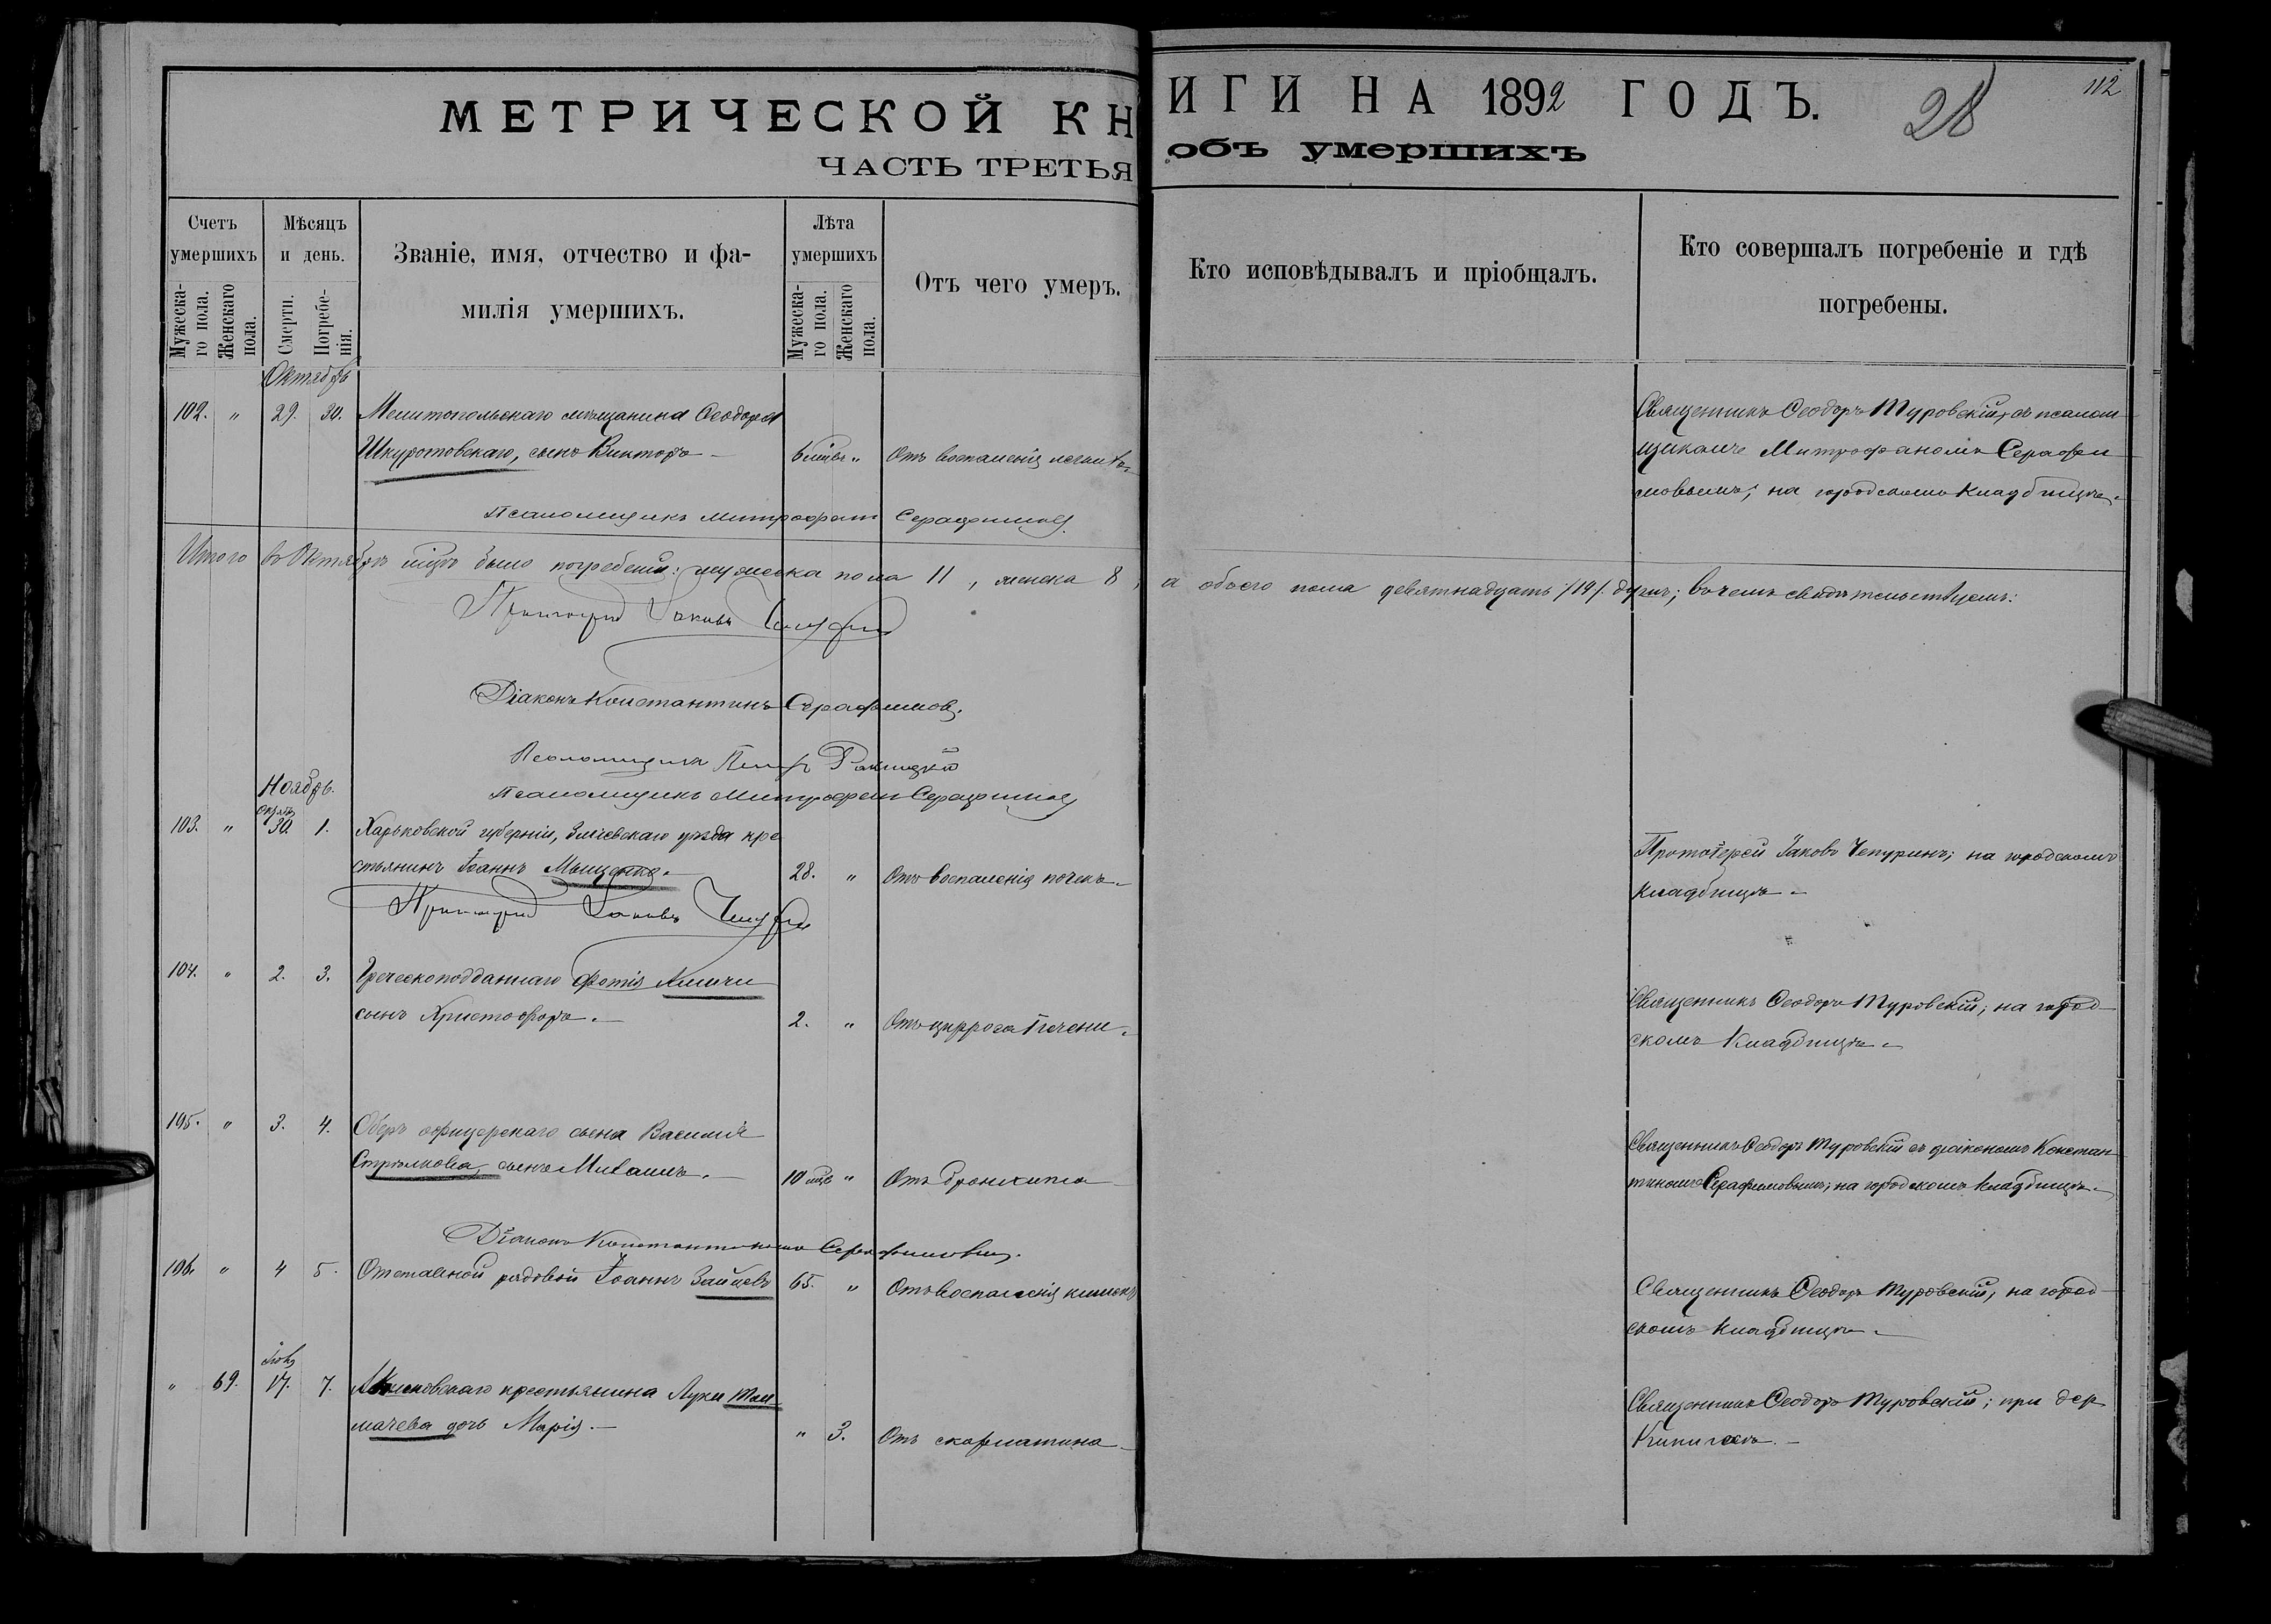 МЕТРИЧЕСКОЙ КНИГИ НА 1892 ГОДЪ.
28
112
ЧАСТЬ ТРЕТЬЯ объ умершихъ
Счетъ умершихъ
Мѣсяцъ и день.
Званіе, имя, отчество и фа-
милія умершихъ.
Лѣта умершихъ
Отъ чего умеръ.
Кто исповѣдывалъ и пріобщалъ.
Кто совершалъ погребеніе и гдѣ
погребены.
Мужеска-
го пола.
Женскаго
пола.
Смерти.
Погребе-
нія.
Мужеска-
го пола.
Женскаго
пола.
Октябрь
102. " 29. 30. Мелитопольскаго мѣщанина Ѳеодора
Шкуротовскаго, сынъ Викторъ 6 мцвъ " Отъ воспаленія легкихъ.
Священникъ Ѳеодоръ Туровскій, съ псалом
щикомъ Митрофаномъ Серафи
мовымъ; на городскомъ кладбищѣ.
Псаломщикъ Митрофанъ Серафимовъ
Итого въ Октябрѣ мцѣ было погребено: мужеска пола 11, женска 8, а обоего пола девятнадцать /19/ душъ; въ чемъ свидѣтельствуемъ:
Протоіерей Іаковъ Чепуринъ
Діаконъ Константинъ Серафимовъ.
Псаломщикъ Петръ
Псаломщикъ Митрофанъ Серафимовъ
Ноябрь.
Октяб.
103. " 30. 1. Харьковской губерніи, Зміевскаго уѣзда кре
стьянинъ Іоаннъ Мищенко. 28. " Отъ воспаленія почекъ.
Протоіерей Іаковъ Чепуринъ; на городскомъ
кладбищѣ.
Протоіерей Іаковъ Чепуринъ
104. " 2. 3. Греческоподданнаго Фотія
сынъ Христофоръ. 2. " Отъ цирроса печени.
Священникъ Ѳеодоръ Туровскій; на город
скомъ кладбищѣ.
105. " 3. 4. Оберъ офицерскаго сына Василія
Стрѣлкова, сынъ Михаилъ. 10 мцв " Отъ бронхита
Священникъ Ѳеодоръ Туровскій съ діакономъ Констан
тиномъ Серафимовымъ; на городскомъ кладбищѣ.
Діаконъ Константинъ Серафимовъ.
106. " 4 5. Отставной рядовой Іоаннъ Зайцевъ 65. " Отъ воспаленія кишекъ
Священникъ Ѳеодоръ Туровскій, на город
скомъ кладбищѣ.
" 69. 17. 7. крестьянина Луки Тол
мачева дочь Марія. " 3. Отъ скарлатина
Священникъ Ѳеодоръ Туровскій; при дер.